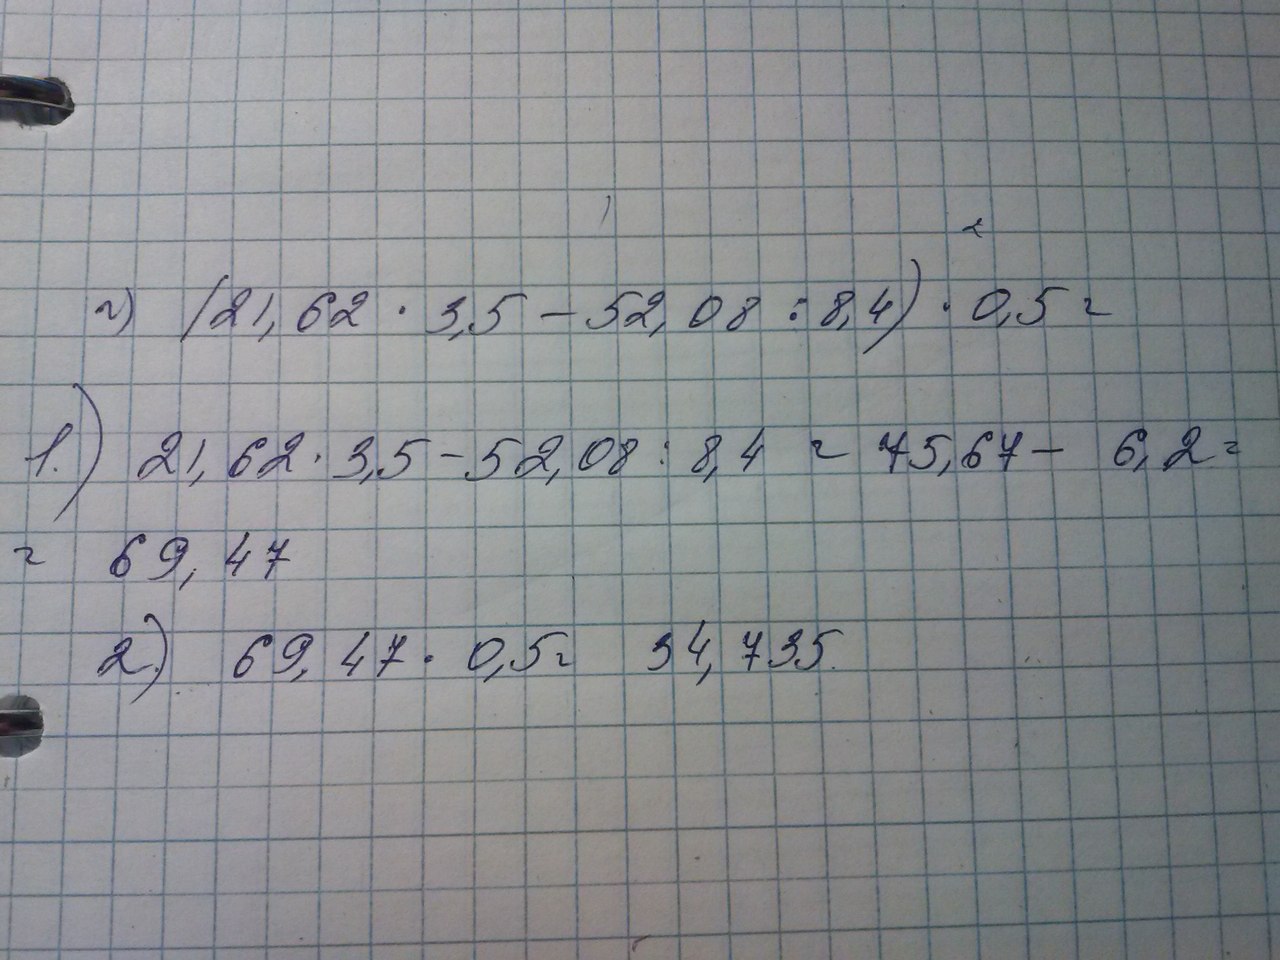 1 2
г) (21,62 · 3,5 - 52,08 : 8,4) · 0,5 =
1.) 21,62 · 3,5 - 52,08 : 8,4 = 75,67 - 6,2 =
= 69,47
2.) 69,47 · 0,5 = 34,735.